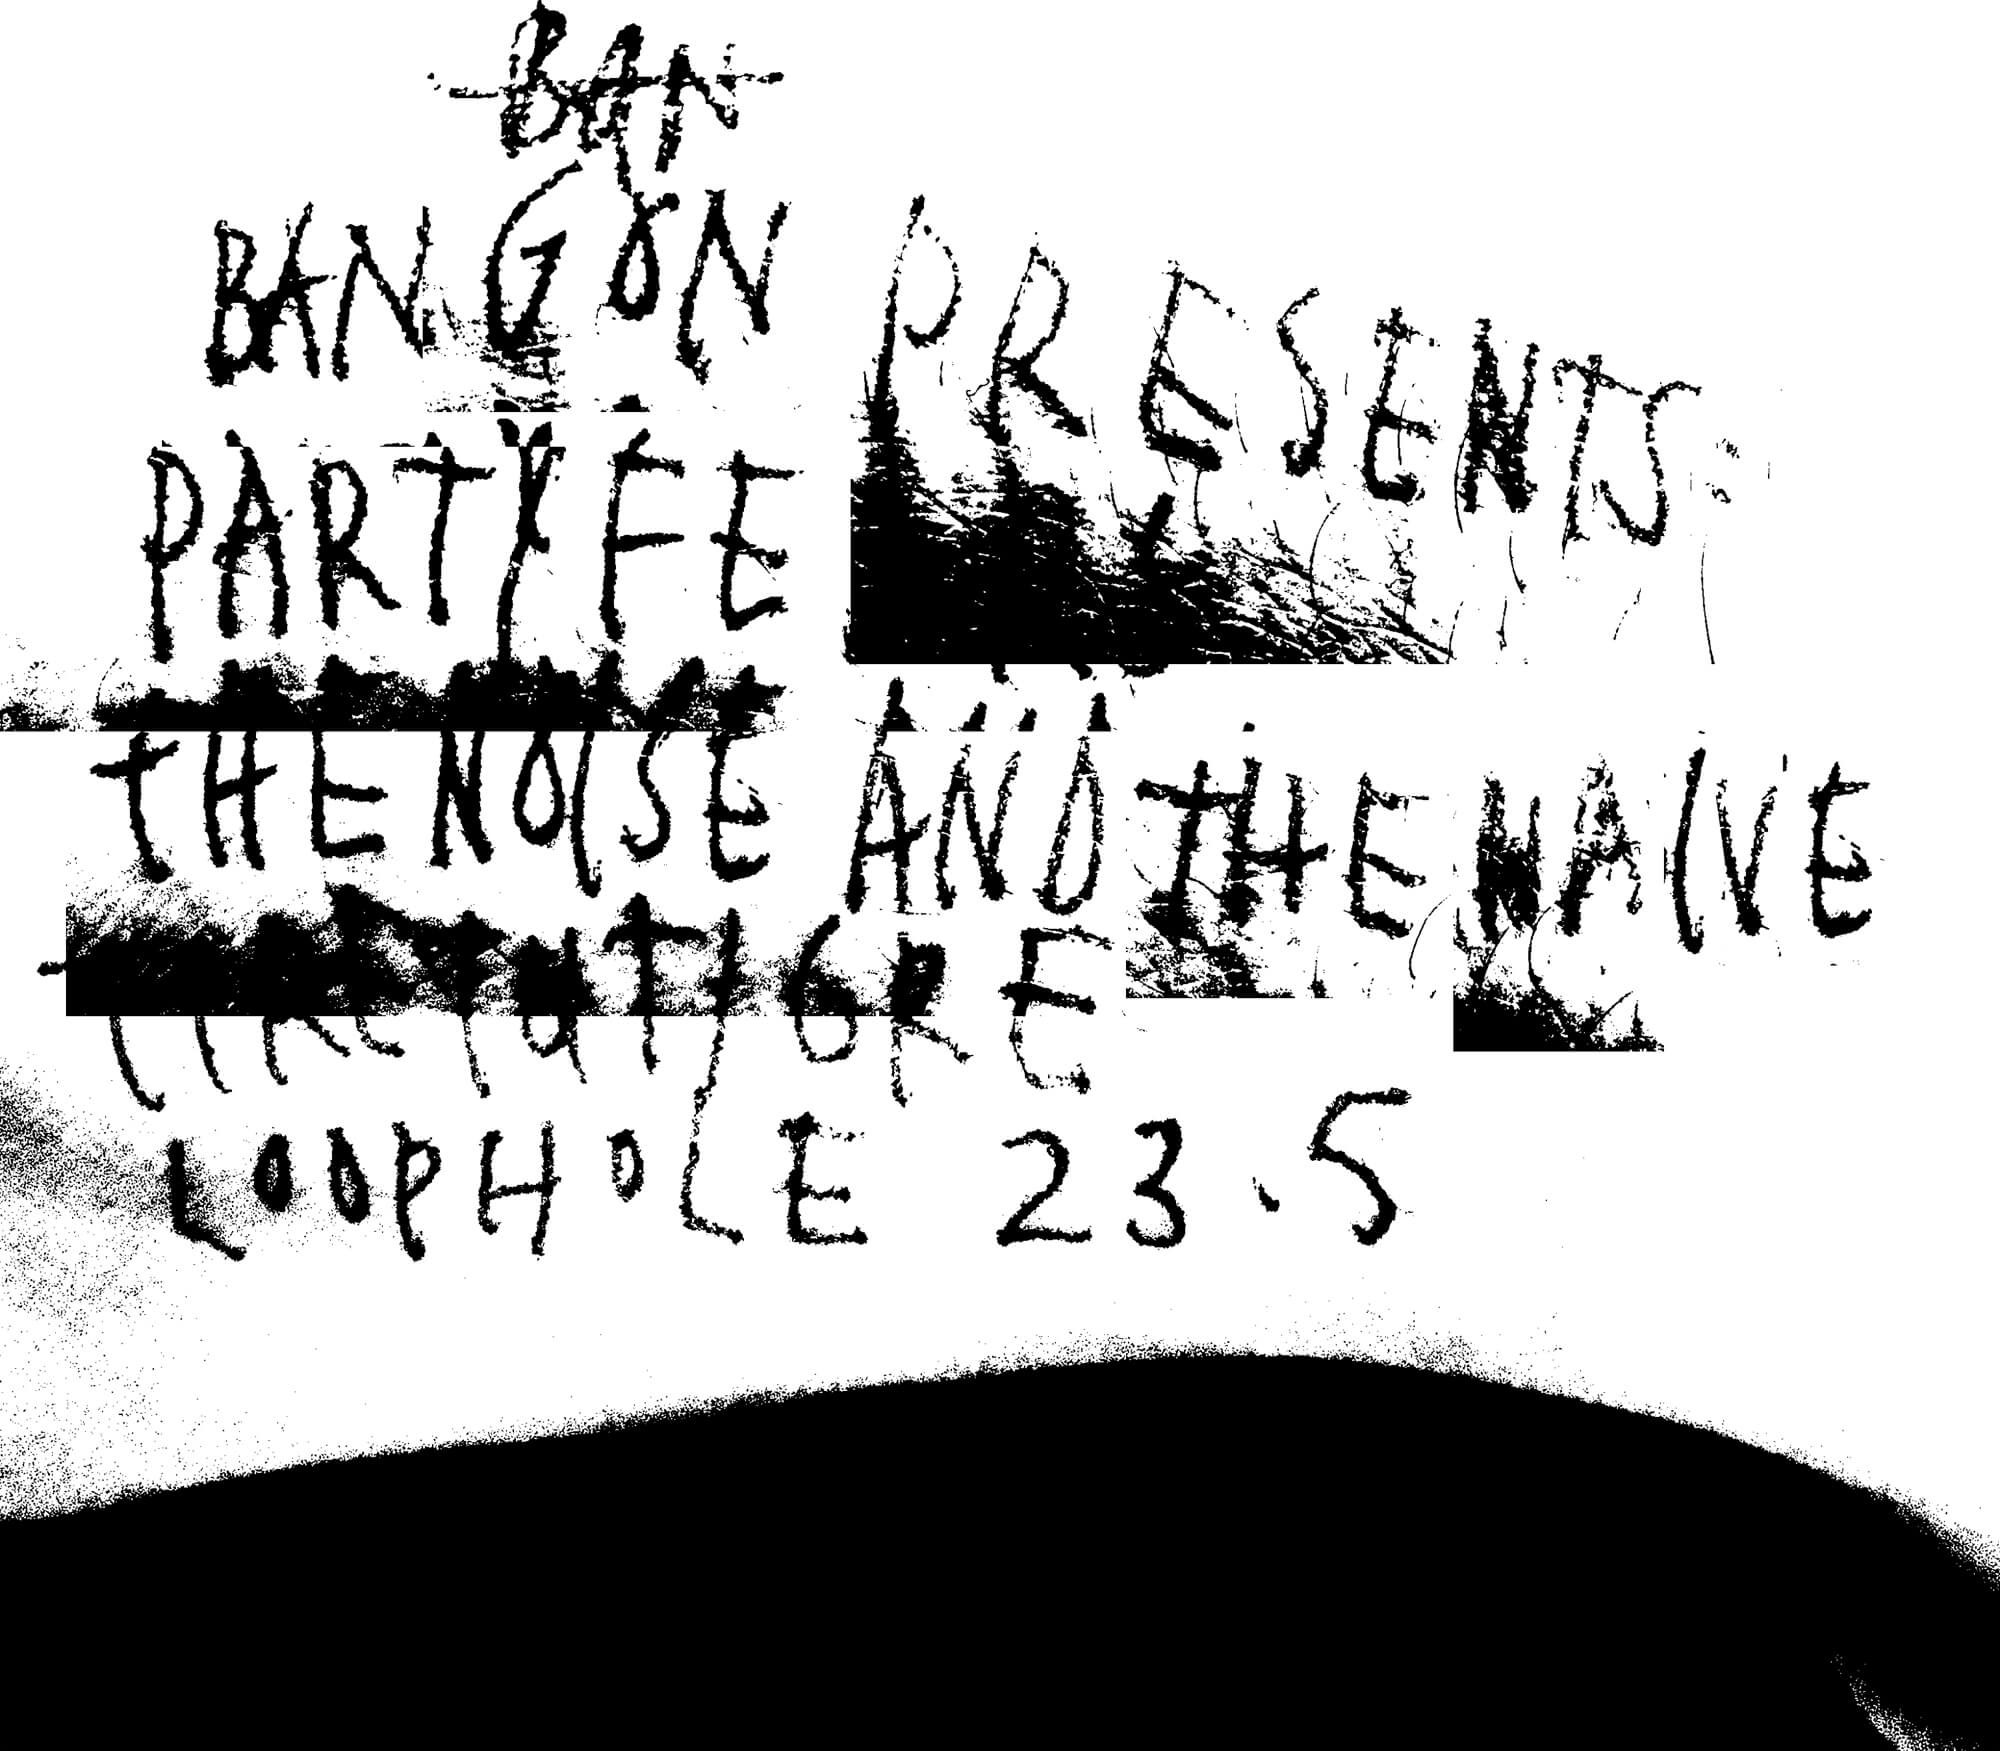 BAN
BANGON PRESENTS:
PARTY FE
THE NOISE AND THE NAIVE
TIGRE
LOOPHOLE 23.5